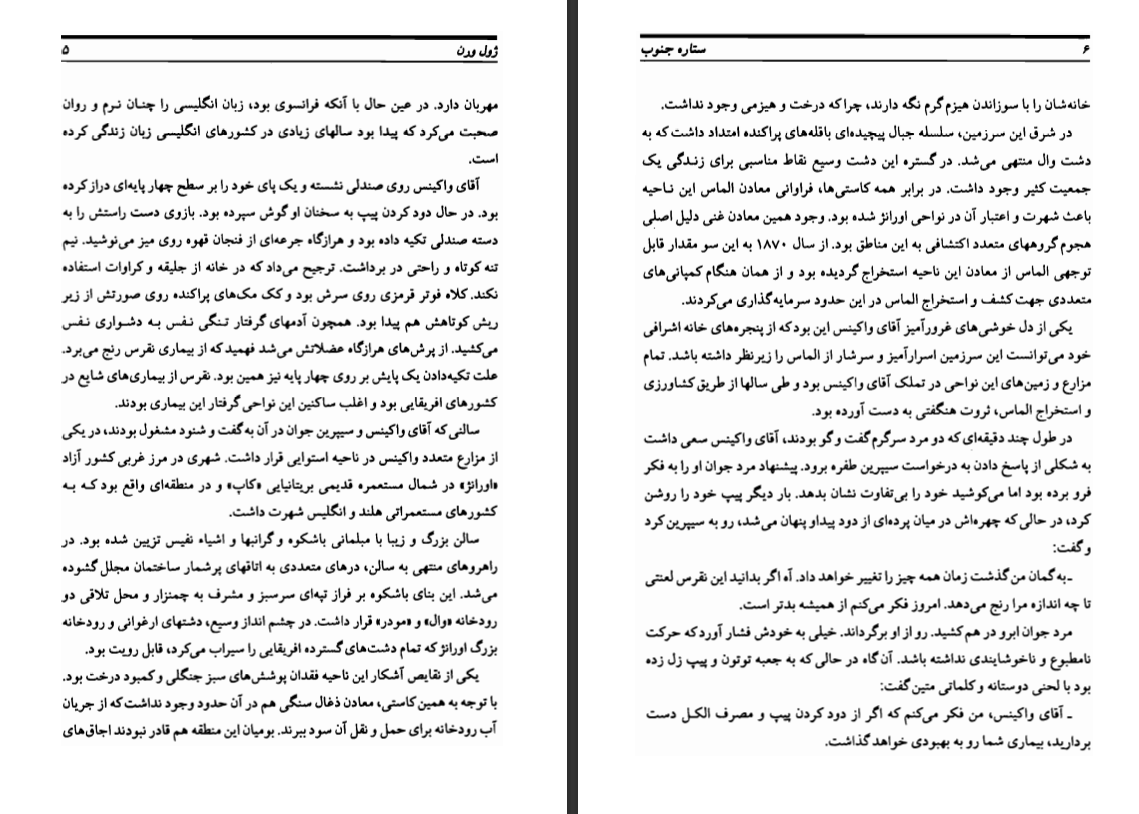 ژول ورن ۵
مهربان دارد. در عین حال با آنکه فرانسوی بود، زبان انگلیسی را چنان نرم و روان
صحبت می‌کرد که پیدا بود سالهای زیادی در کشورهای انگلیسی زبان زندگی کرده
است.
آقای واکینس روی صندلی نشسته و یک پای خود را بر سطح چهار پایه‌ای دراز کرده
بود. در حال دود کردن پیپ به سخنان او گوش سپرده بود. بازوی دست راستش را به
دسته صندلی تکیه داده بود و هرازگاه جرعه‌ای از فنجان قهوه روی میز می‌نوشید. نیم
تنه کوتاه و راحتی در برداشت. ترجیح می‌داد که در خانه از جلیقه و کراوات استفاده
نکند. کلاه فوتر قرمزی روی سرش بود و کک مک‌های پراکنده روی صورتش از زیر
ریش کوتاهش هم پیدا بود. همچون آدمهای گرفتار تنگی نفس به دشواری نفس
می‌کشید. از پرش‌های هرازگاه عضلاتش می‌شد فهمید که از بیماری نقرس رنج می‌برد.
علت تکیه‌دادن یک پایش بر روی چهار پایه نیز همین بود. نقرس از بیماری‌های شایع در
کشورهای افریقایی بود و اغلب ساکنین این نواحی گرفتار این بیماری بودند.
سالنی که آقای واکینس و سیپرین جوان در آن به گفت و شنود مشغول بودند، در یکی
از مزارع متعدد واکینس در ناحیه استوایی قرار داشت. شهری در مرز غربی کشور آزاد
«اورانژ» در شمال مستعمره قدیمی بریتانیایی «کاپ» و در منطقه‌ای واقع بود که به
کشورهای مستعمراتی هلند و انگلیس شهرت داشت.
سالن بزرگ و زیبا با مبلمانی باشکوه و گرانبها و اشیاء نفیس تزیین شده بود. در
راهروهای منتهی به سالن، درهای متعددی به اتاقهای پرشمار ساختمان مجلل گشوده
می‌شد. این بنای باشکوه بر فراز تپه‌ای سرسبز و مشرف به چمنزار و محل تلاقی دو
رودخانه «وال» و «مودر» قرار داشت. در چشم انداز وسیع، دشتهای ارغوانی و رودخانه
بزرگ اورانژ که تمام دشت‌های گسترده افریقایی را سیراب می‌کرد، قابل رویت بود.
یکی از نقایص آشکار این ناحیه فقدان پوشش‌های سبز جنگلی و کمبود درخت بود.
با توجه به همین کاستی، معادن ذغال سنگی هم در آن حدود وجود نداشت که از جریان
آب رودخانه برای حمل و نقل آن سود ببرند. بومیان این منطقه هم قادر نبودند اجاق‌های
۶ ستاره جنوب
خانه‌شان را با سوزاندن هیزم گرم نگه دارند، چرا که درخت و هیزمی وجود نداشت.
در شرق این سرزمین، سلسله جبال پیچیده‌ای باقله‌های پراکنده امتداد داشت که به
دشت وال منتهی می‌شد. در گستره این دشت وسیع نقاط مناسبی برای زندگی یک
جمعیت کثیر وجود داشت. در برابر همه کاستی‌ها، فراوانی معادن الماس این ناحیه
باعث شهرت و اعتبار آن در نواحی اورانژ شده بود. وجود همین معادن غنی دلیل اصلی
هجوم گروههای متعدد اکتشافی به این مناطق بود. از سال ۱۸۷۰ به این سو مقدار قابل
توجهی الماس از معادن این ناحیه استخراج گردیده بود و از همان هنگام کمپانی‌های
متعددی جهت کشف و استخراج الماس در این حدود سرمایه‌گذاری می‌کردند.
یکی از دل خوشی‌های غرورآمیز آقای واکینس این بود که از پنجره‌های خانه اشرافی
خود می‌توانست این سرزمین اسرارآمیز و سرشار از الماس را زیرنظر داشته باشد. تمام
مزارع و زمین‌های این نواحی در تملک آقای واکینس بود و طی سالها از طریق کشاورزی
و استخراج الماس، ثروت هنگفتی به دست آورده بود.
در طول چند دقیقه‌ای که دو مرد سرگرم گفت و گو بودند، آقای واکینس سعی داشت
به شکلی از پاسخ دادن به درخواست سیپرین طفره برود. پیشنهاد مرد جوان او را به فکر
فرو برده بود اما می‌کوشید خود را بی‌تفاوت نشان بدهد. بار دیگر پیپ خود را روشن
کرد، در حالی که چهره‌اش در میان پرده‌ای از دود پیدا و پنهان می‌شد، رو به سیپرین کرد
و گفت:
ـ به گمان من گذشت زمان همه چیز را تغییر خواهد داد. آه اگر بدانید این نقرس لعنتی
تا چه اندازه مرا رنج می‌دهد. امروز فکر می‌کنم از همیشه بدتر است.
مرد جوان ابرو در هم کشید. رو از او برگرداند. خیلی به خودش فشار آورد که حرکت
نامطبوع و ناخوشایندی نداشته باشد. آن گاه در حالی که به جعبه توتون و پیپ زل زده
بود با لحنی دوستانه و کلماتی متین گفت:
ـ آقای واکینس، من فکر می‌کنم که اگر از دود کردن پیپ و مصرف الکل دست
بردارید، بیماری شما رو به بهبودی خواهد گذاشت.